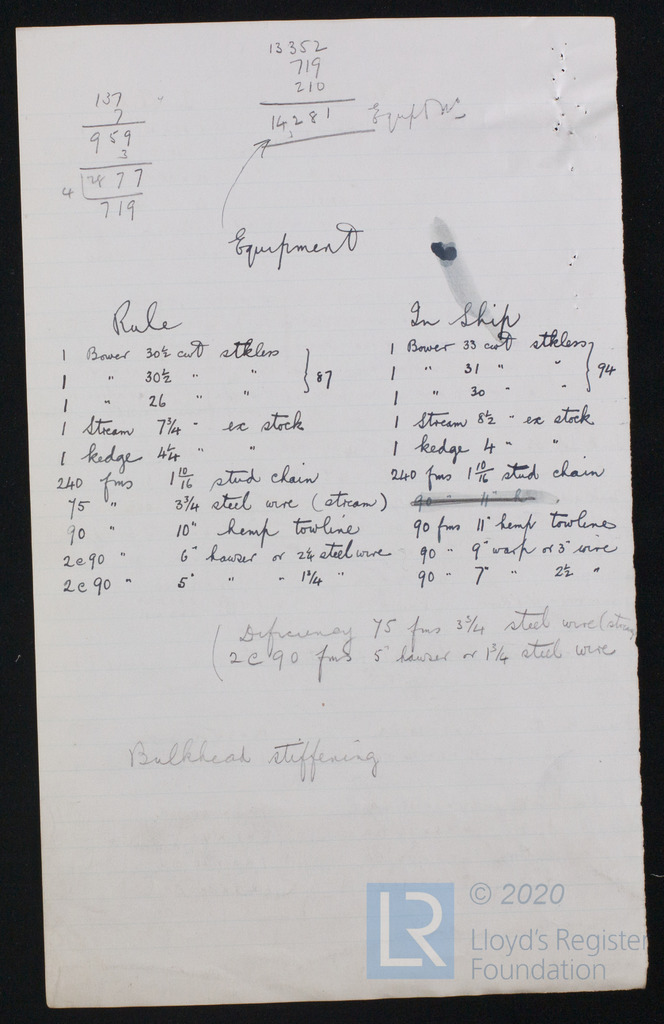 13352
719
210
14281 Equipt No
137
7
959
3
4 2877
719
Equipment
Rule
1 Bower 30½ cwt stkless
1 " 30½ " "
1 " 26 " "
87
1 Stream 7¾ " ex stock
1 kedge 4¼ " "
240 fms 1 10/16 stud chain
75 " 3¾ steel wire (stream)
90 " 10" hemp towline
2 @ 90 " 6" hawser or 2¼ steel wire
2 @ 90 " 5" " " 1¾ "
In Ship
1 Bower 33 cwt stkless
1 " 31 " "
1 " 30 " "
94
1 Stream 8½ " ex stock
1 kedge 4 " "
240 fms 1 10/16 stud chain
90 " 11" h
90 fms 11" hemp towline
90 " 9" warp or 3" wire
90 " 7" " 2½ "
(Deficiency 75 fms 3¾ steel wire (stream
2 @ 90 fms 5" hawser or 1¾ steel wire
Bulkhead stiffening
LR
© 2020
Lloyd's Register
Foundation